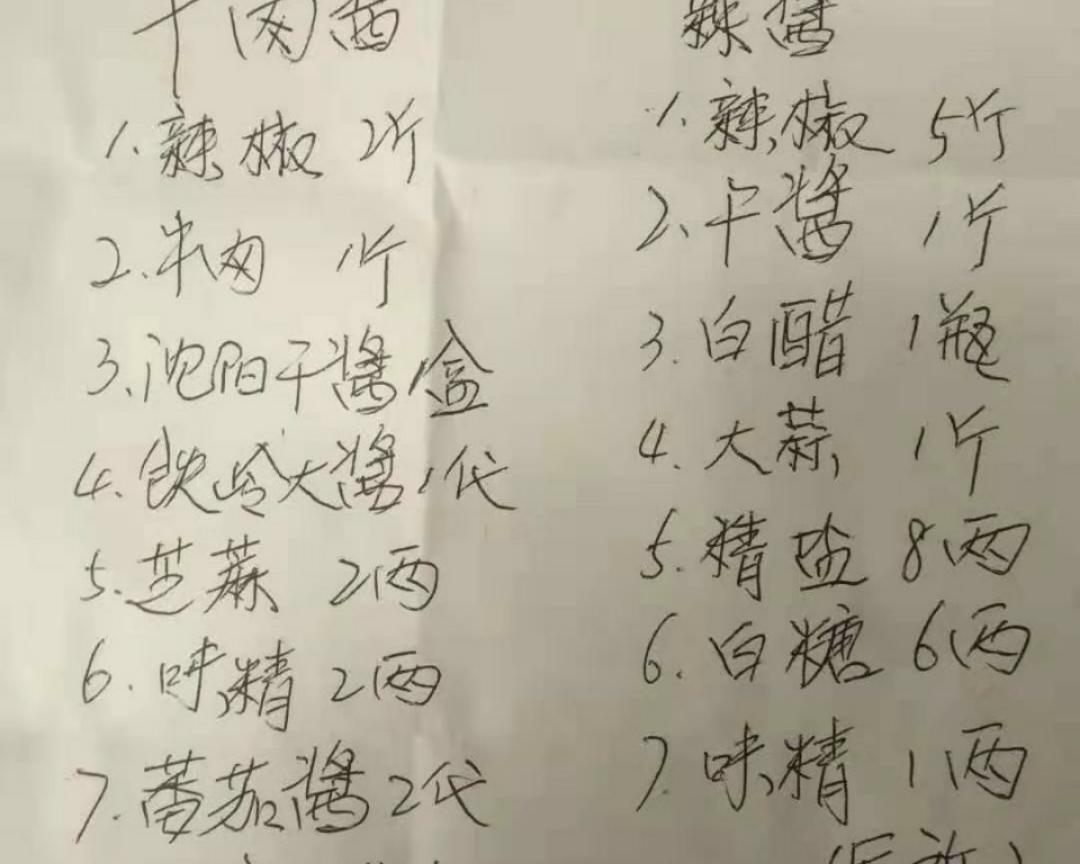 辣醬
1. 辣椒 2斤
2. 牛肉 1斤
3. 沈阳干醬1盒
4. 铁岭大醬1代
5. 芝蔴 2两
6. 味精 2两
7. 蕃茄醬2代
1. 辣椒 5斤
2. 干醬 1斤
3. 白醋 1瓶
4. 大蒜 1斤
5. 精盐 8两
6. 白糖 6两
7. 味精 1两